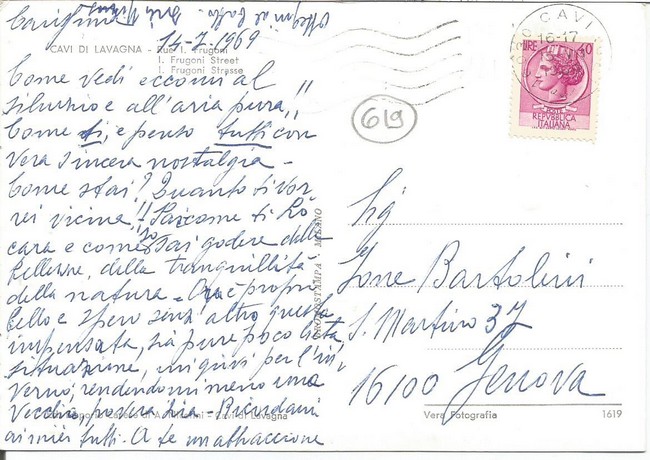 Carissima
14-7-1969
CAVI DI LAVAGNA - Rue I. Frugoni
I. Frugoni Street
I. Frugoni Strasse
Come vedi eccomi al
silenzio e all'aria pura,,
Come ti, e penso tutti con
vera sincera nostalgia -
Come stai? Quanto ti vor
rei vicina!! Siccome ti so
cara e come sai godere delle
bellezze, della tranquillità
della natura - Ora è proprio
bello e spero senz'altro questa
impensata, sia pure poco lieta
situazione, mi giovi per l'in,
verno, rendendomi meno una
vecchia, - Ricordami
ai miei tutti. A te un'attraccione
CAVI
16-17
LIRE 40
POSTE
REPVBBLICA
ITALIANA
619
Sig
Jone Bartolini
S. Martino 37
16100 Genova
MILANO
Cavi di Lavagna
Vera Fotografia
1619